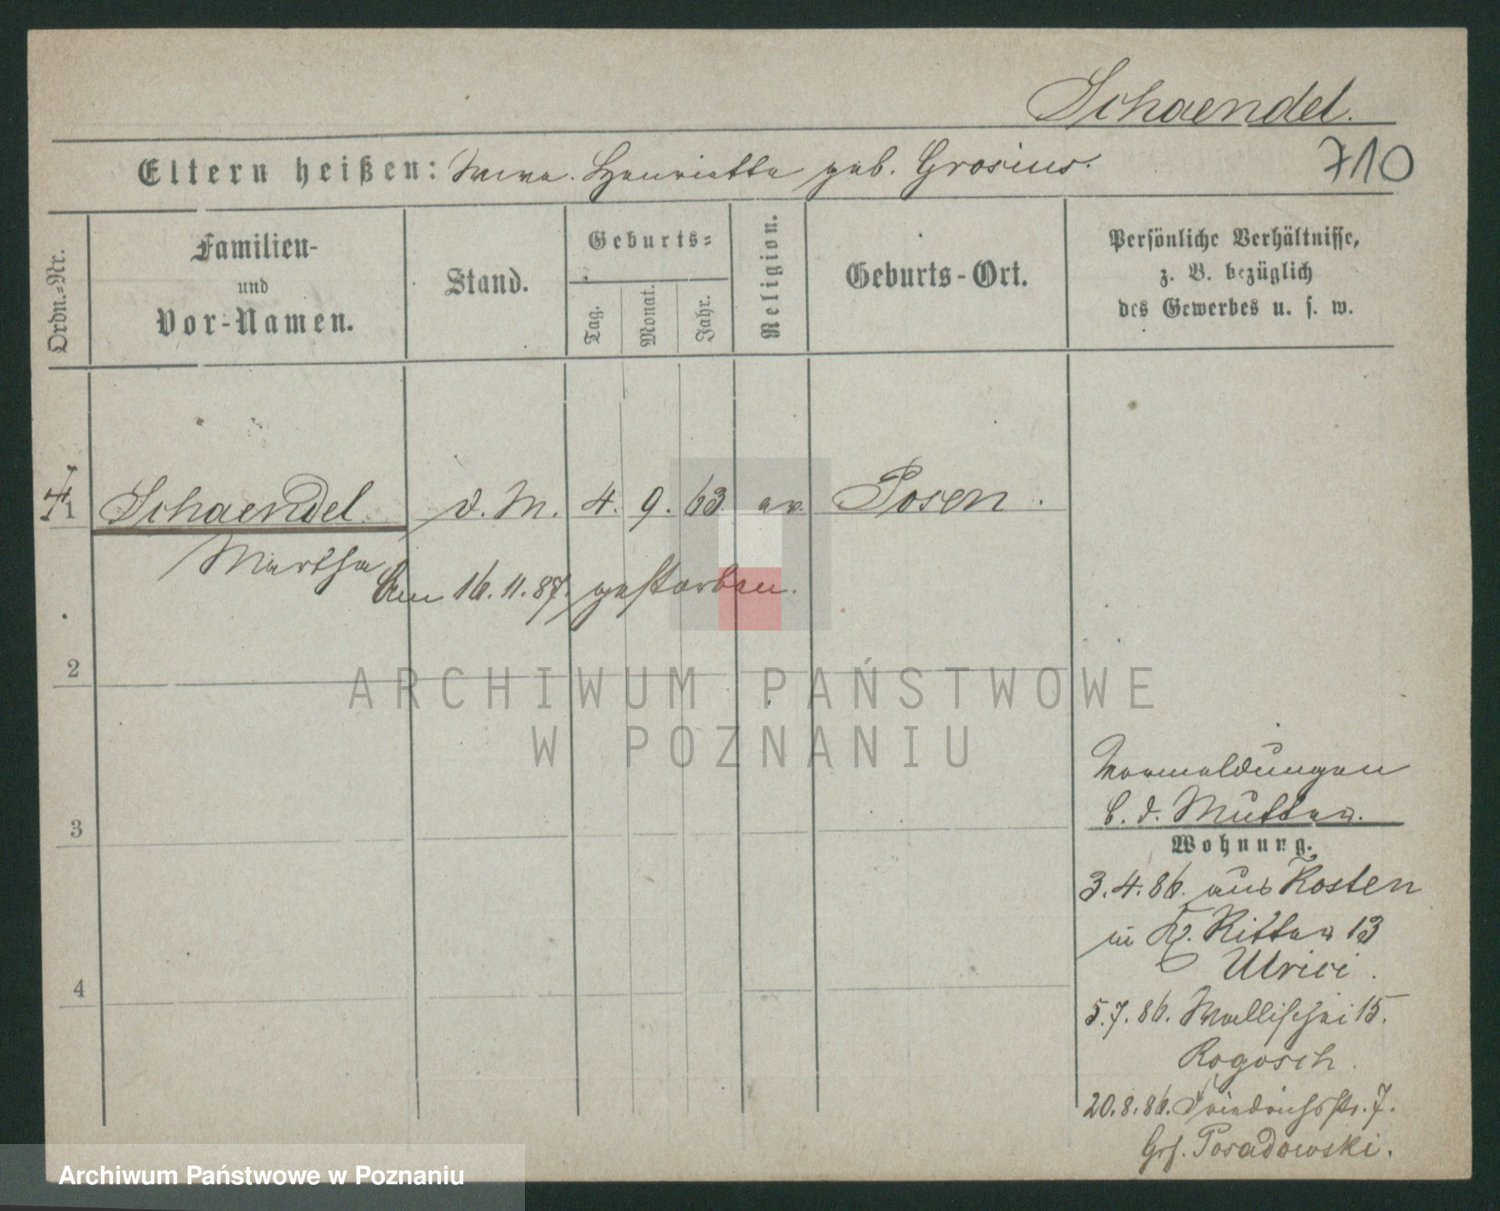 Schaendel.
710
Eltern heißen: Wwe. Henriette geb. Grosius.
Ordn.-Nr.
Familien-
und
Vor-Namen.
Stand.
Geburts-
Tag.
Monat.
Jahr.
Religion.
Geburts-Ort.
Persönliche Verhältnisse,
z. B. bezüglich
des Gewerbes u. s. w.
1 Schaendel d. M. 4. 9. 63 ev Posen.
Martha
Am 16.11.87. gestorben.
2
ARCHIWUM PAŃSTWOWE
W POZNANIU
3
4
Vormeldungen
b. d. Mutter.
Wohnung.
3.4.86. aus Kosten
in Kl. Ritter 13
Ulrici.
5.7.86. Wallischei 15.
Rogosch.
20.8.86. Friedrichsstr. 7.
Grf. Posadowski.
Archiwum Państwowe w Poznaniu